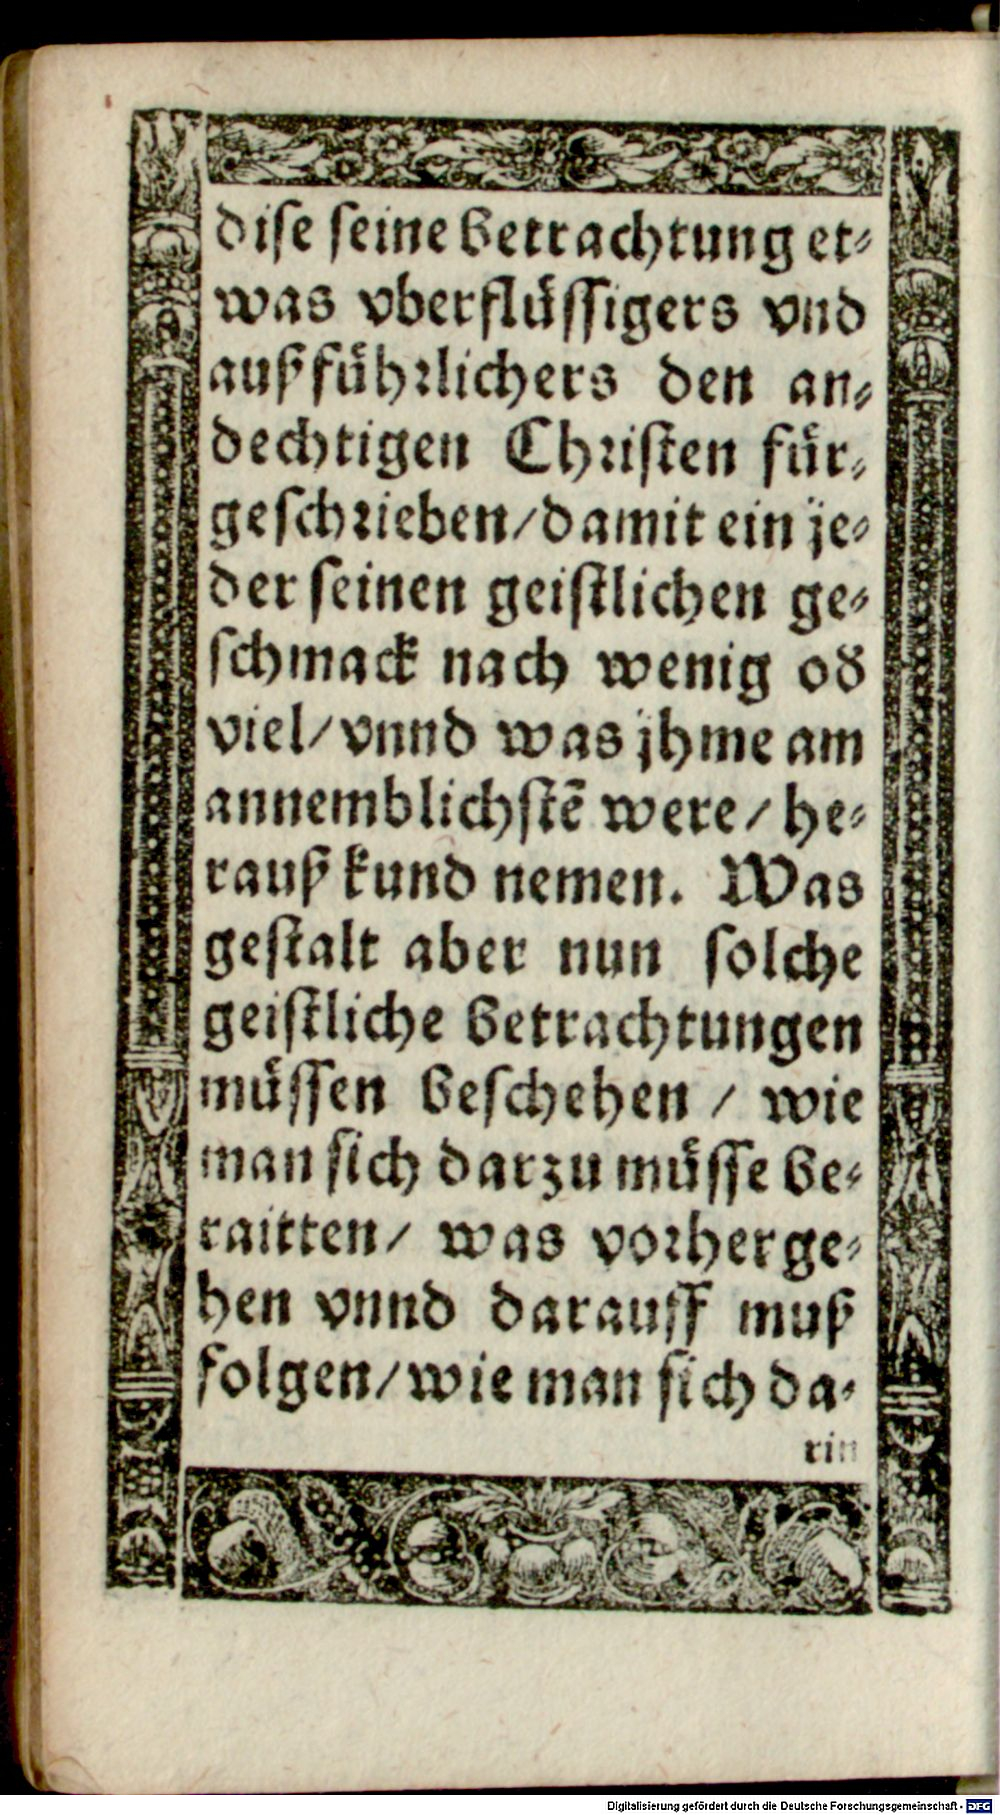 dise seine betrachtung et-
was vberflüssigers vnd
außführlichers den an-
dechtigen Christen für-
geschrieben/damit ein je-
der seinen geistlichen ge-
schmack nach wenig od
viel/vnnd was jhme am
annemblichstē were/ he-
rauß kund nemen. Was
gestalt aber nun solche
geistliche betrachtungen
müssen beschehen / wie
man sich darzu müsse be-
raitten/ was vorher ge-
hen vnnd darauff muß
folgen/wie man sich da-
rin
Digitalisierung gefördert durch die Deutsche Forschungsgemeinschaft - DFG